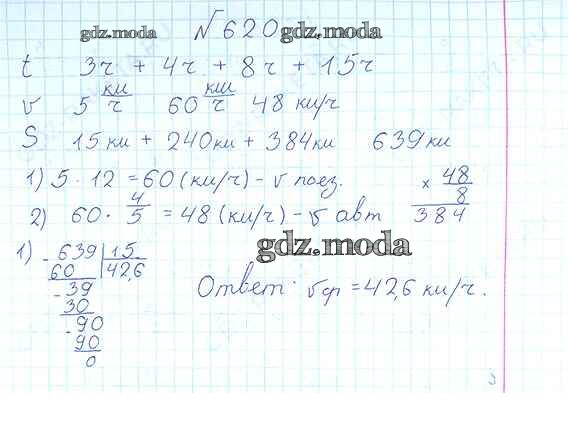 gdz.moda №620 gdz.moda
t 3ч + 4ч + 8ч + 15ч
v 5 км/ч 60 км/ч 48 км/ч
S 15км + 240км + 384км 639км
1) 5 · 12 = 60 (км/ч) - v поез.
× 48
8
384
2) 60 · 4/5 = 48 (км/ч) - v авт
gdz.moda
1) - 639 | 15
60 42,6
- 39
30
- 90
90
0
Ответ: vср = 42,6 км/ч.